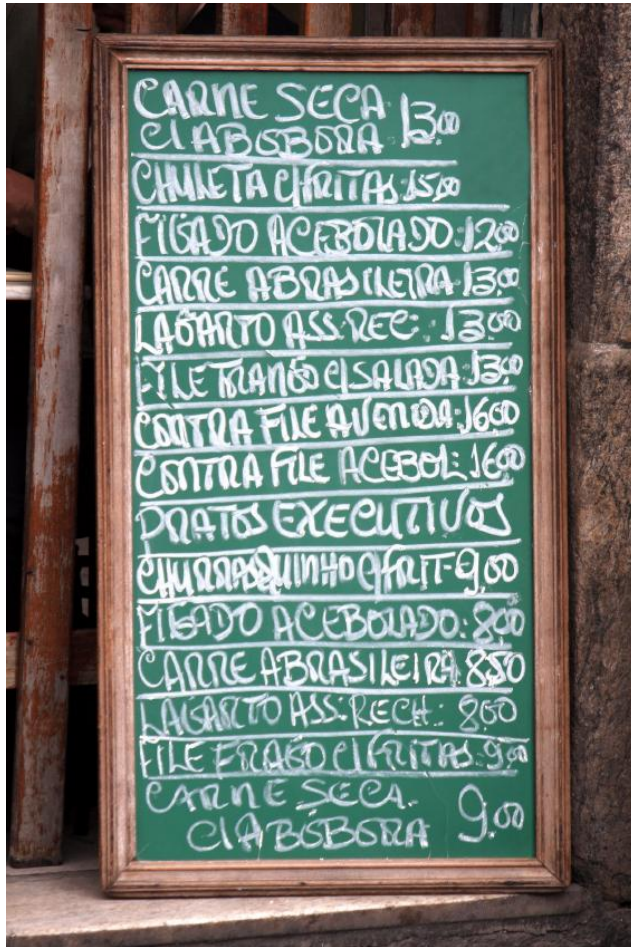 CARNE SECA
C/ABOBORA 13,00
CHULETA C/FRITAS: 15,00
FIGADO ACEBOLADO: 12,00
CARRE ABRASILEIRA 13,00
LAGARTO ASS. REC: 13,00
FILE FRANGO C/SALADA: 13,00
CONTRA FILE AVENIDA: 16,00
CONTRA FILE ACEBOL: 16,00
PRATOS EXECUTIVOS
CHURRASQUINHO C/FRIT-9,00
FIGADO ACEBOLADO: 8,00
CARRE ABRASILEIRA: 8,50
LAGARTO ASS. RECH.: 8,00
FILE FRAGO C/FRITAS: 9,00
CARNE SECA.
C/ABOBORA 9,00